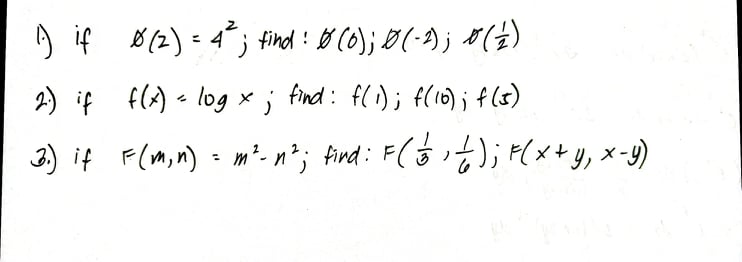 1) if ø(2) = 4²; find: ø(0); ø(-2); ø(1/2)
2) if f(x) = log x; find: f(1); f(10); f(5)
3.) if F(m,n) = m²-n²; find: F(1/3, 1/6); F(x+y, x-y)